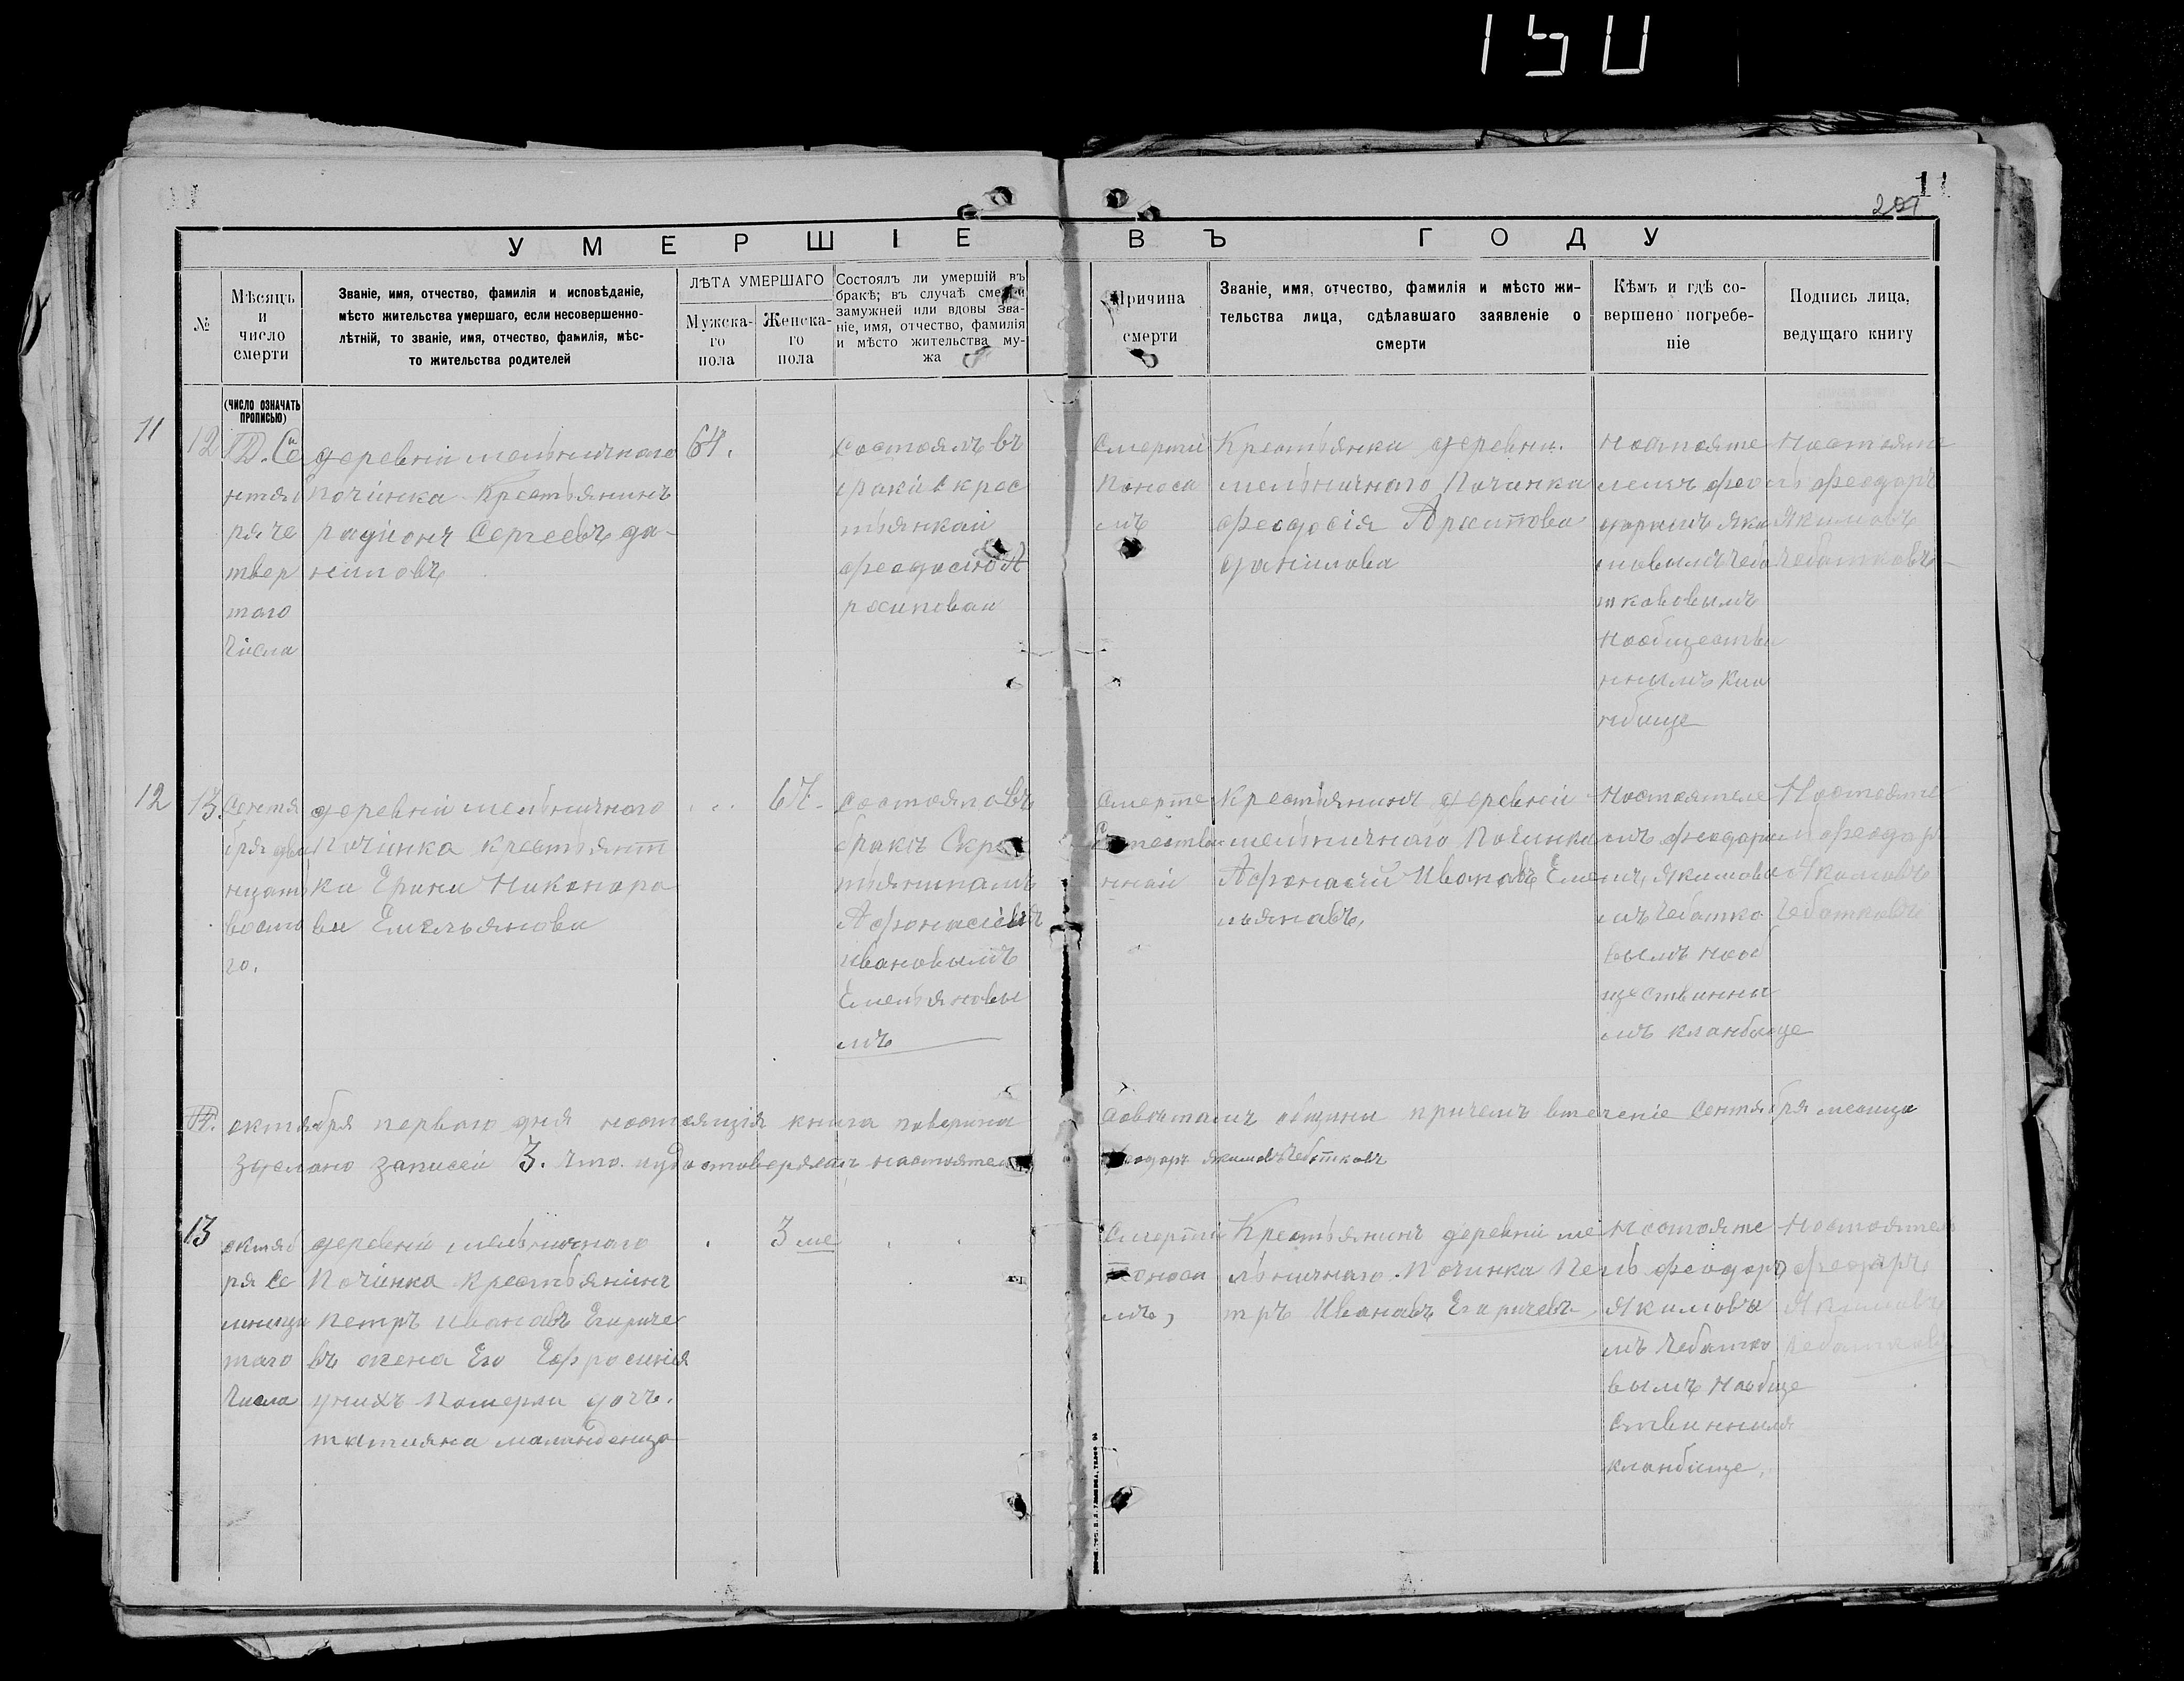 150
11
11
201
УМЕРШІЕ ВЪ ГОДУ
№
Мѣсяцъ
и
число
смерти
Званіе, имя, отчество, фамилія и исповѣданіе,
мѣсто жительства умершаго, если несовершенно-
лѣтній, то званіе, имя, отчество, фамилія, мѣс-
то жительства родителей
ЛѢТА УМЕРШАГО
Мужска-
го
пола
Женска-
го
пола
Состоялъ ли умершій въ
бракѣ; въ случаѣ смерти
замужней или вдовы зва-
ніе, имя, отчество, фамилія
и мѣсто жительства му-
жа
Причина
смерти
Званіе, имя, отчество, фамилія и мѣсто жи-
тельства лица, сдѣлавшаго заявленіе о
смерти
Кѣмъ и гдѣ со-
вершено погребе-
ніе
Подпись лица,
ведущаго книгу
(ЧИСЛО ОЗНАЧАТЬ
ПРОПИСЬЮ)
11
12
Се
нтяб
ря че
твер
таго
Числа
деревніи мельничнаго
Починка Крестьянинъ
радионъ Сергеевъ да-
ниловъ
64.
состоялъ въ
браки с крес
тьянкай
феодосіюй А
рхиповай
Смертй
Поноса
мъ
Крестьянка деревни.
мельничнаго Починка
феодосія Архипова
данилова
Настояте
лемъ фео
дорамъ Яки
мовымъ Чеба
тковымъ
Наобществе
ннымъ Кла
нбище
Настояте
ль феодоръ
Якимовъ
Чебатковъ
12
13.
Сентя
бря два
нцать
восмо
го.
деревніи мельничнаго
Починка крестьянт
ка Ерина Никонаро
ва Емельянова
67.
состояла въ
бракъ Скрес
тьяниномъ
Афонасіемъ
ивановымъ
Емельяновы
мъ
Смерте
Естестве
ннай
Крестьянинъ деревніи
мельничнаго Починка
Афонасій Ивановъ Еме
льяновъ,
Настояеле
мъ феодора
мъ, Якимовы
мъ Чебатко
вымъ Наоб
щественны
мъ кланбище
Настояте
ль феодаръ
Якимовъ
Чебатковъ
октября первого дня настоящія книга поверина Советамъ общины причемъ втеченіе сентября месица
зделано записей 3. что. иудостоверяемъ настоятель феодоръ якимовъ Чебатковъ
13
октяб
ря се
мнаца
таго
Числа
деревніи мельничнаго
Починка Крестьянинъ
Петръ ивановъ Егориче
въ жена Его Ефросинія
унихъ Померла дочъ.
татияна маминденца
3 ме
Смертй
Поноса
мъ,
Крестьянинъ деревніи ме
льничнаго. Починка Пе
тръ Ивановъ Егоричевъ
Настояте
ль феодоръ
Якимовы
мъ Чебатко
вымъ Наобще
ственныя
кланбище,
Настоятел
феодаръ
Якимовъ
Чебатковъ